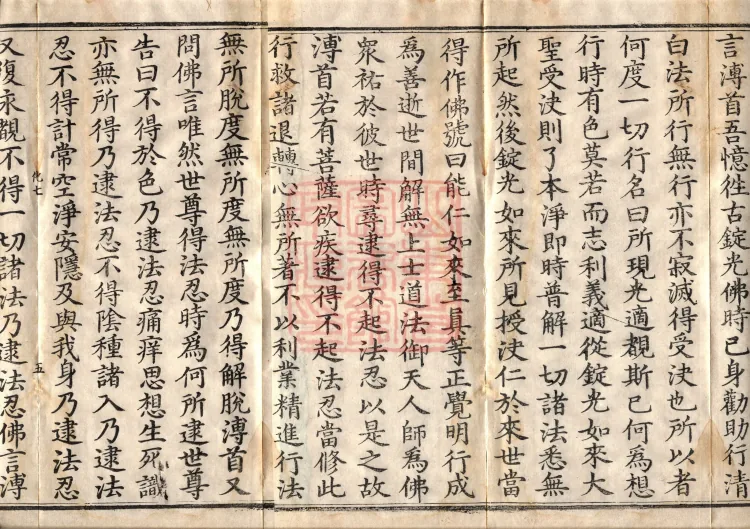 言溥首吾憶往古錠光佛時已身勸助行清
白法所行無行亦不寂滅得受決也所以者
何度一切行名曰所現光適覩斯已何為想
行時有色莫若而志利義適從錠光如來大
聖受決則了本淨即時普解一切諸法悉無
所起然後錠光如來所見授決仁於來世當
得作佛號曰能仁如來至真等正覺明行成
為善逝世間解無上士道法御天人師為佛
衆祐於彼世時尋逮得不起法忍以是之故
溥首若有菩薩欲疾逮得不起法忍當修此
行救諸退轉心無所著不以利業精進行法
無所脫度無所度無所度乃得解脫溥首又
問佛言唯然世尊得法忍時為何所逮世尊
告曰不得於色乃逮法忍痛痒思想生死識
亦無所得乃逮法忍不得陰種諸入乃逮法
忍不得計常空淨安隱及與我身乃逮法忍
化七 五
又復汞觀不得一切諸法乃逮法忍佛言溥